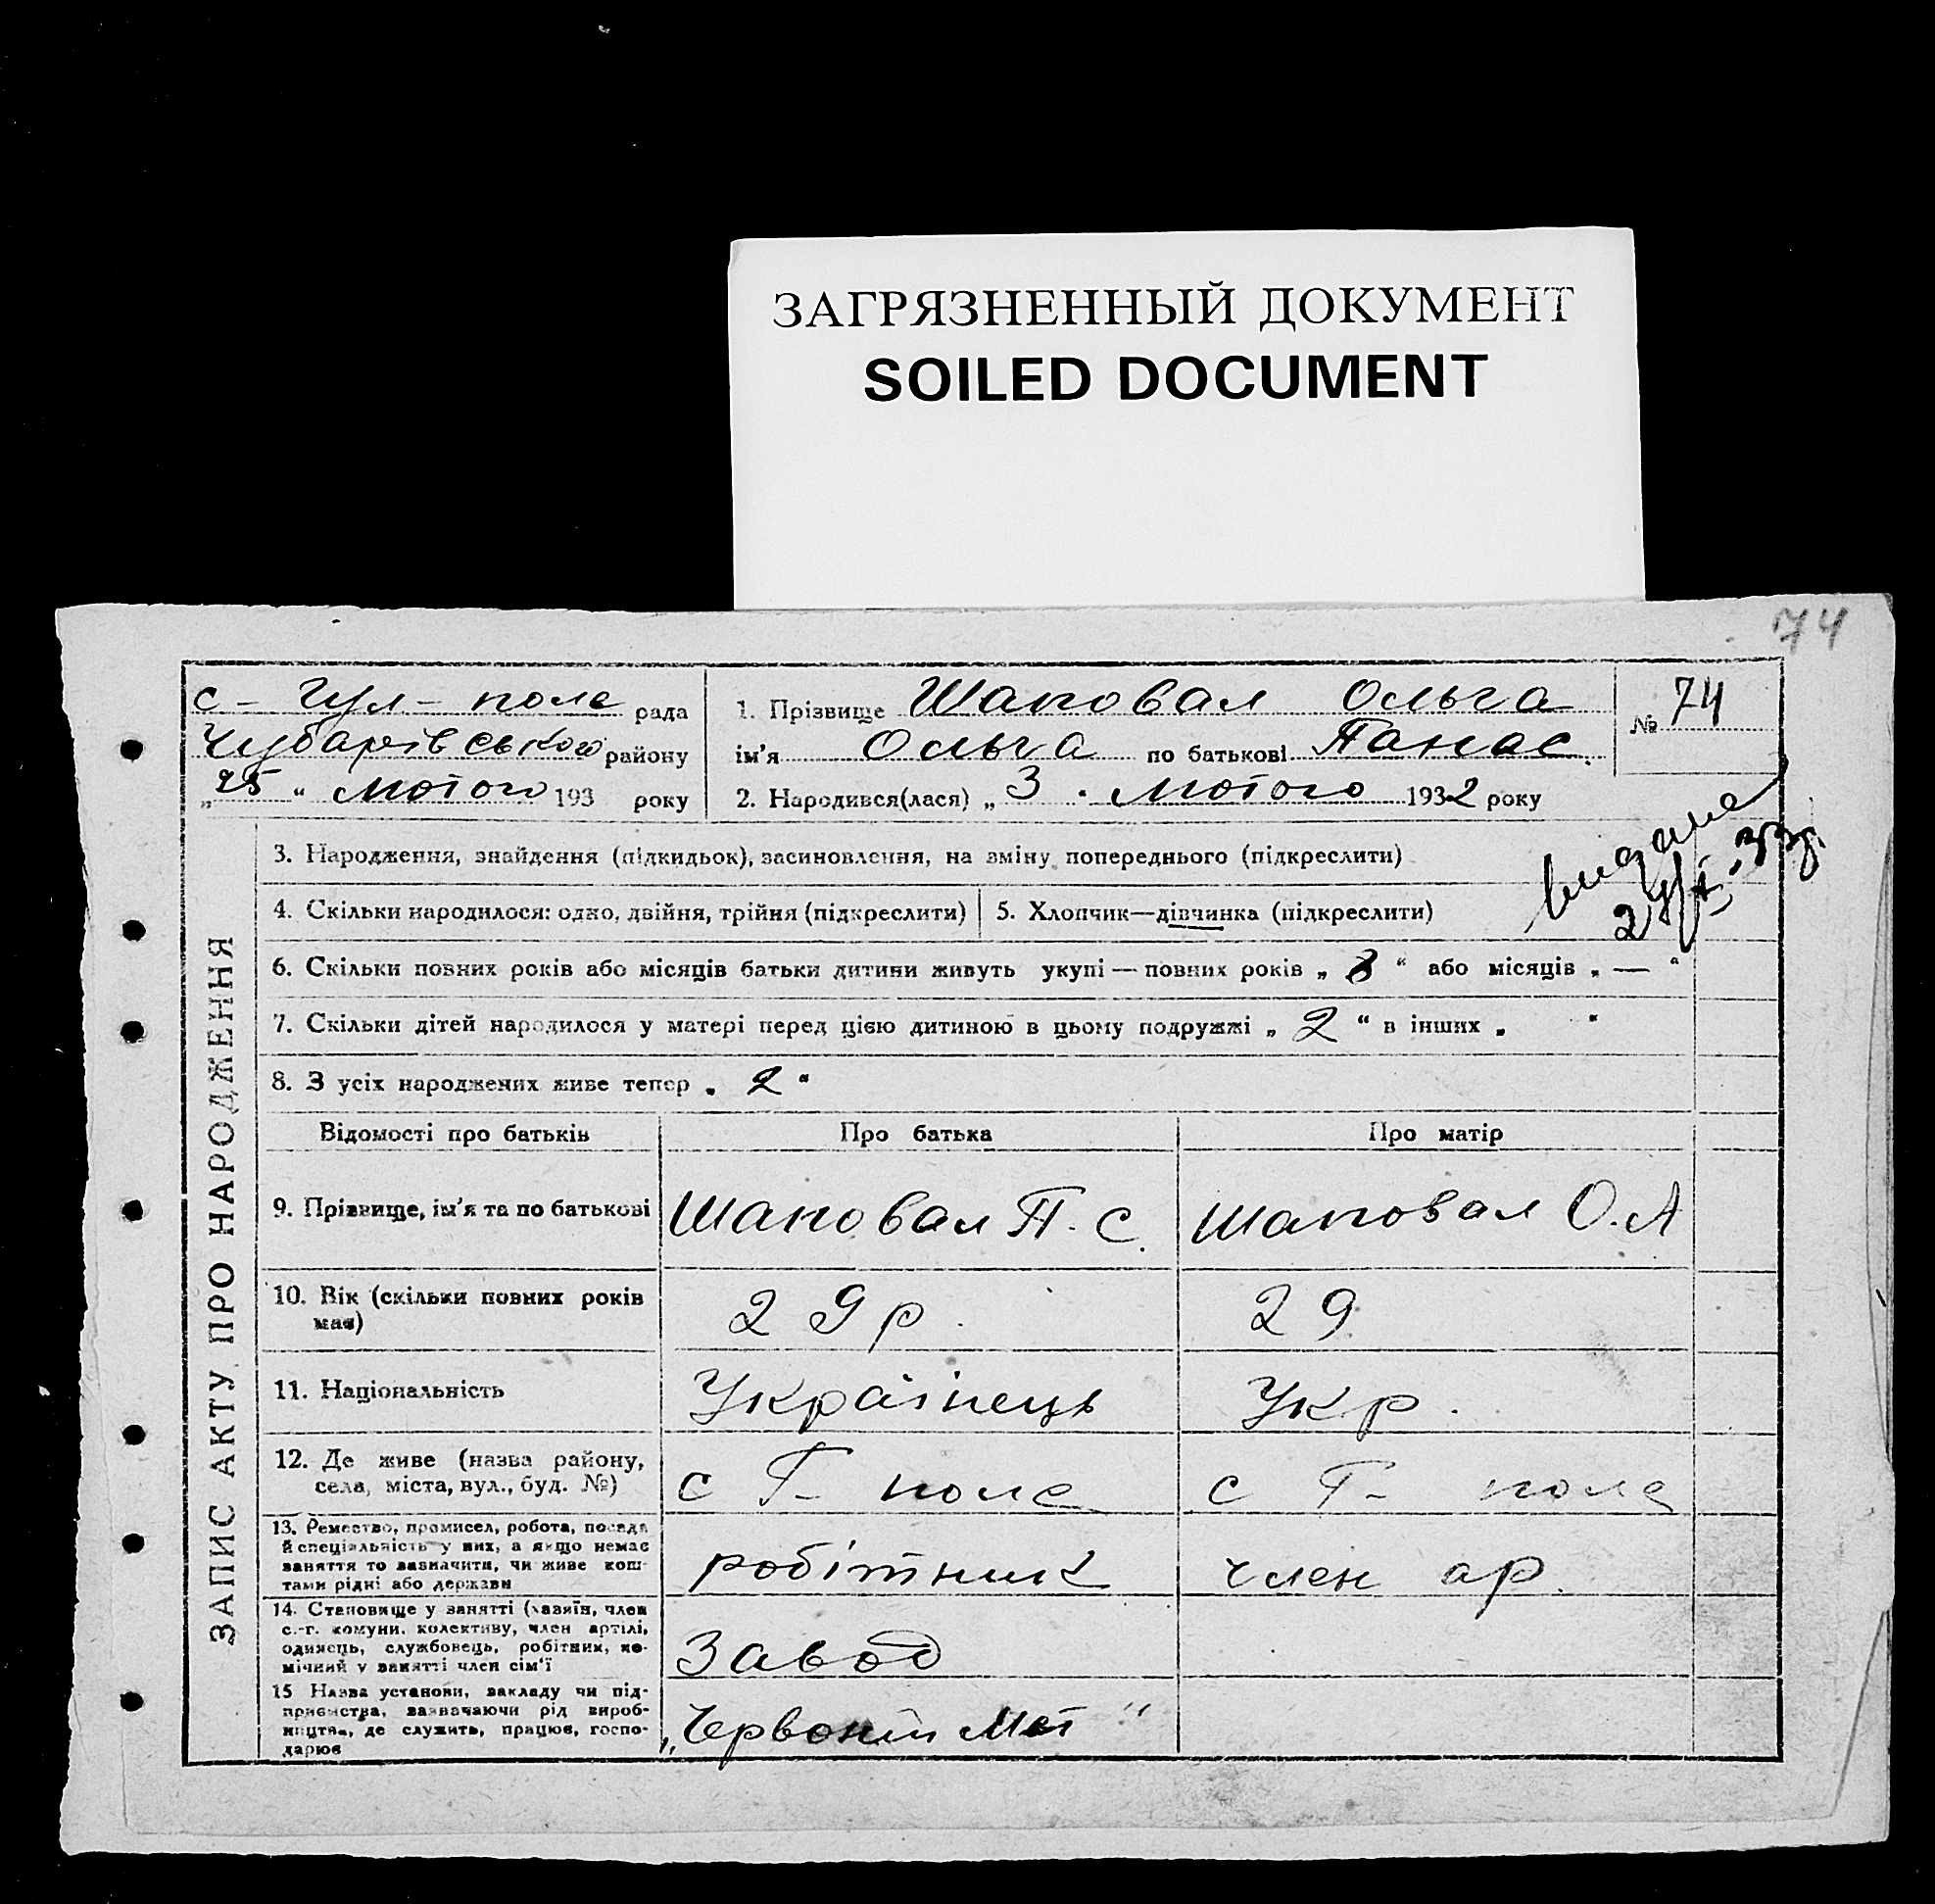 ЗАГРЯЗНЕННЫЙ ДОКУМЕНТ
SOILED DOCUMENT
74
с - Гул - поле рада
Чубарівського району
„25“ лютого 193 року
1. Прізвище Шаповал Ольга
ім'я Ольга по батькові Панас.
2. Народився(лася) „ 3 . лютого 1932 року
№ 74
видане
3. Народження, знайдення (підкидьок), засиновлення, на зміну попереднього (підкреслити)
4. Скільки народилося: одно, двійня, трійня (підкреслити)
5. Хлопчик—дівчинка (підкреслити)
6. Скільки повних років або місяців батьки дитини живуть укупі — повних років „ 8 “ або місяців „ — “
7. Скільки дітей народилося у матері перед цією дитиною в цьому подружжі „ 2 “ в інших „ “
8. З усіх народжених живе тепер „ 2 “
ЗАПИС АКТУ ПРО НАРОДЖЕННЯ
Відомості про батьків
Про батька
Про матір
9. Прізвище, ім'я та по батькові
Шаповал П. С.
Шаповал О. А
10. Вік (скільки повних років
має)
29 р.
29
11. Національність
Українець
Укр.
12. Де живе (назва району,
села, міста, вул., буд. №)
с Г- поле
с Г- поле
13. Ремество, промисел, робота, посада
й спеціяльність у них, а якщо немає
заняття то зазначити, чи живе кош-
тами рідні або держави
робітник
член ар.
14. Становище у занятті (хазяїн, член
с.-г. комуни, колективу, член артілі,
одинець, службовець, робітник, по-
мічний у занятті член сім'ї
Завод
15 Назва установи, закладу чи під-
приємства, зазначаючи рід вироб-
ництва, де служить, працює, госпо-
дарює
„Червоний Мет“